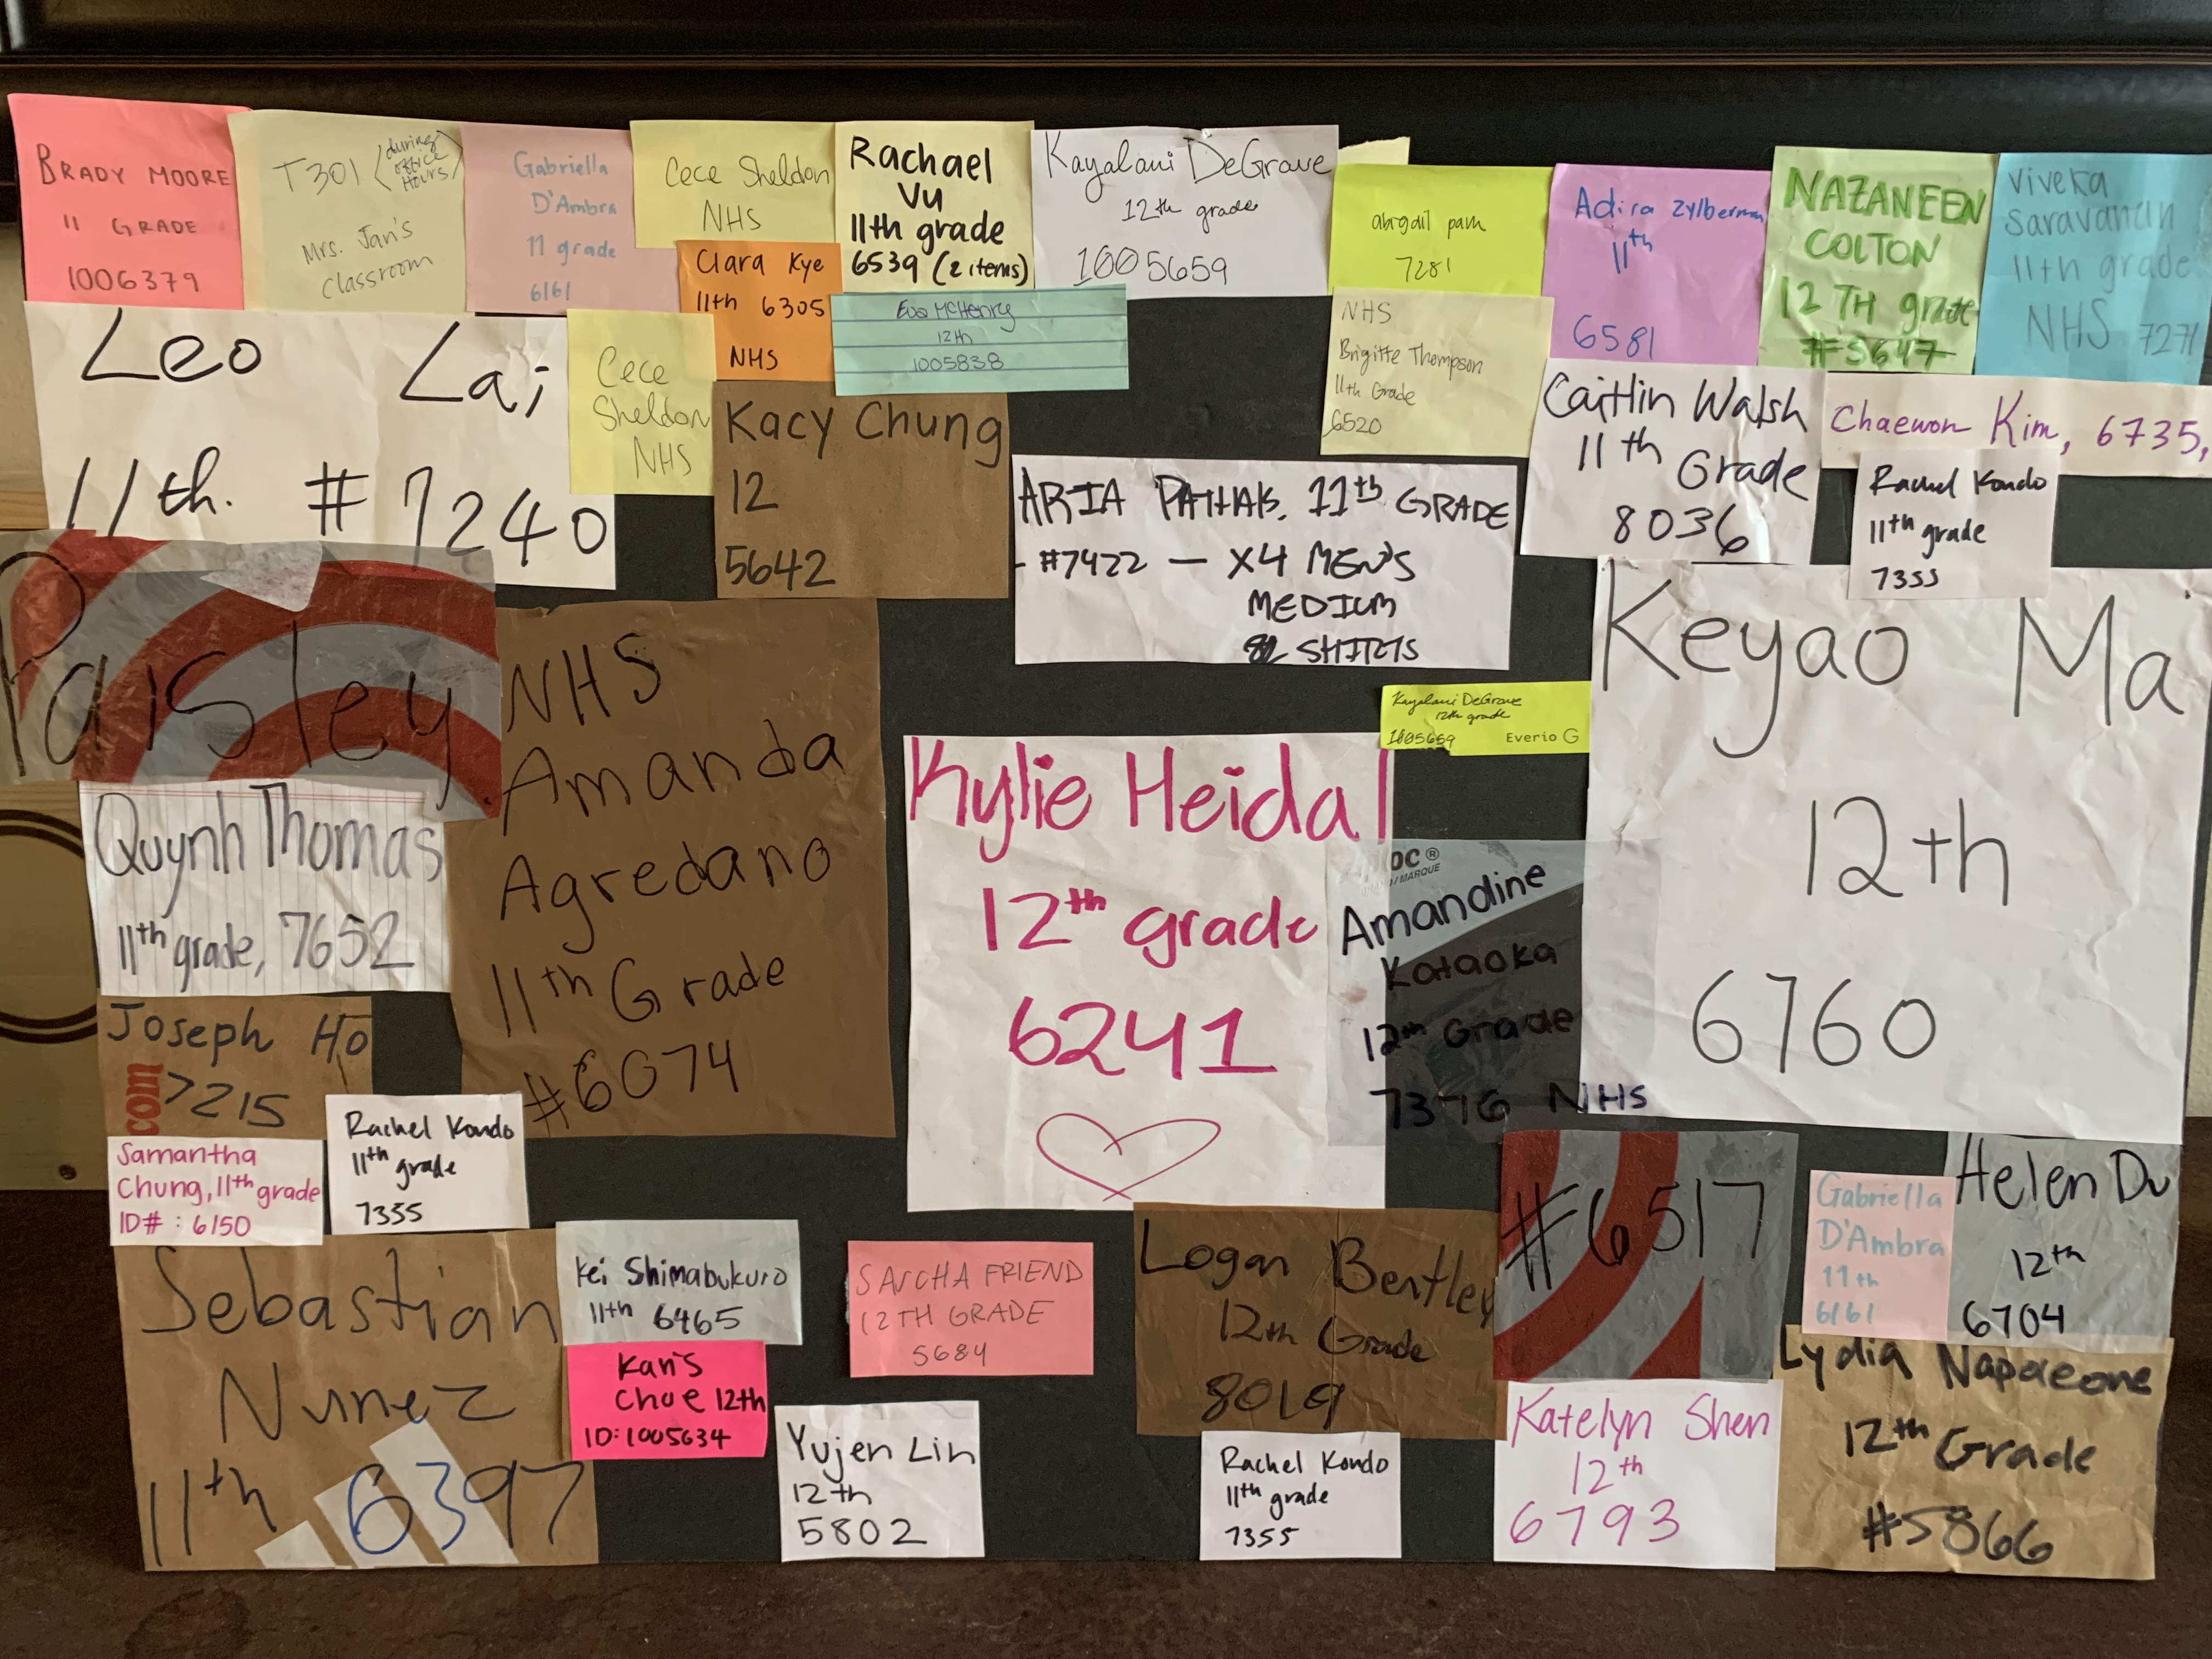 BRADY MOORE
11 GRADE
1006379
T301 (during office Hours)
Mrs. Jan's
classroom
Gabriella
D'Ambra
11 grade
6161
Cece Sheldon
NHS
Rachael
Vu
11th grade
6539 (2 items)
Kayalani DeGrave
12th grade
1005659
abigail pam
7281
Adira Zylberman
11th
6581
NAZANEEN
COLTON
12TH grade
#5647
Viveka
Saravanan
11th grade
NHS 7271
Clara Kye
11th 6305
NHS
Eva McHenry
12th
1005838
NHS
Brigitte Thompson
11th Grade
6520
Leo Lai
11th. #7240
Cece
Sheldon
NHS
Kacy Chung
12
5642
ARIA PATHAK. 11th GRADE
- #7422 — X4 MEN'S
MEDIUM
SHIRTS
Caitlin Walsh
11th Grade
8036
Chaewon Kim, 6735,
Rachel Kondo
11th grade
7355
Paisley
NHS
Amanda
Agredano
11th Grade
#6074
Kayalani DeGrave
12th grade
1005659 Everio G
Keyao Ma
12th
6760
Kylie Heidal
12th grade
6241
OC®
/MARQUE
Amandine
Kataoka
12th Grade
7376 NHS
Quynh Thomas
11th grade, 7652
Joseph Ho
7215
com
Samantha
Chung, 11th grade
ID#: 6150
Rachel Kondo
11th grade
7355
#6517
Gabriella
D'Ambra
11th
6161
Helen Du
12th
6704
Sebastian
Nunez
11th 6397
Kei Shimabukuro
11th 6465
SASCHA FRIEND
12TH GRADE
5684
Logan Bentley
12th Grade
8019
Kan's
Choe 12th
ID: 1005634
Yujen Lin
12th
5802
Rachel Kondo
11th grade
7355
Katelyn Shen
12th
6793
Lydia Napaeone
12th Grade
#5866